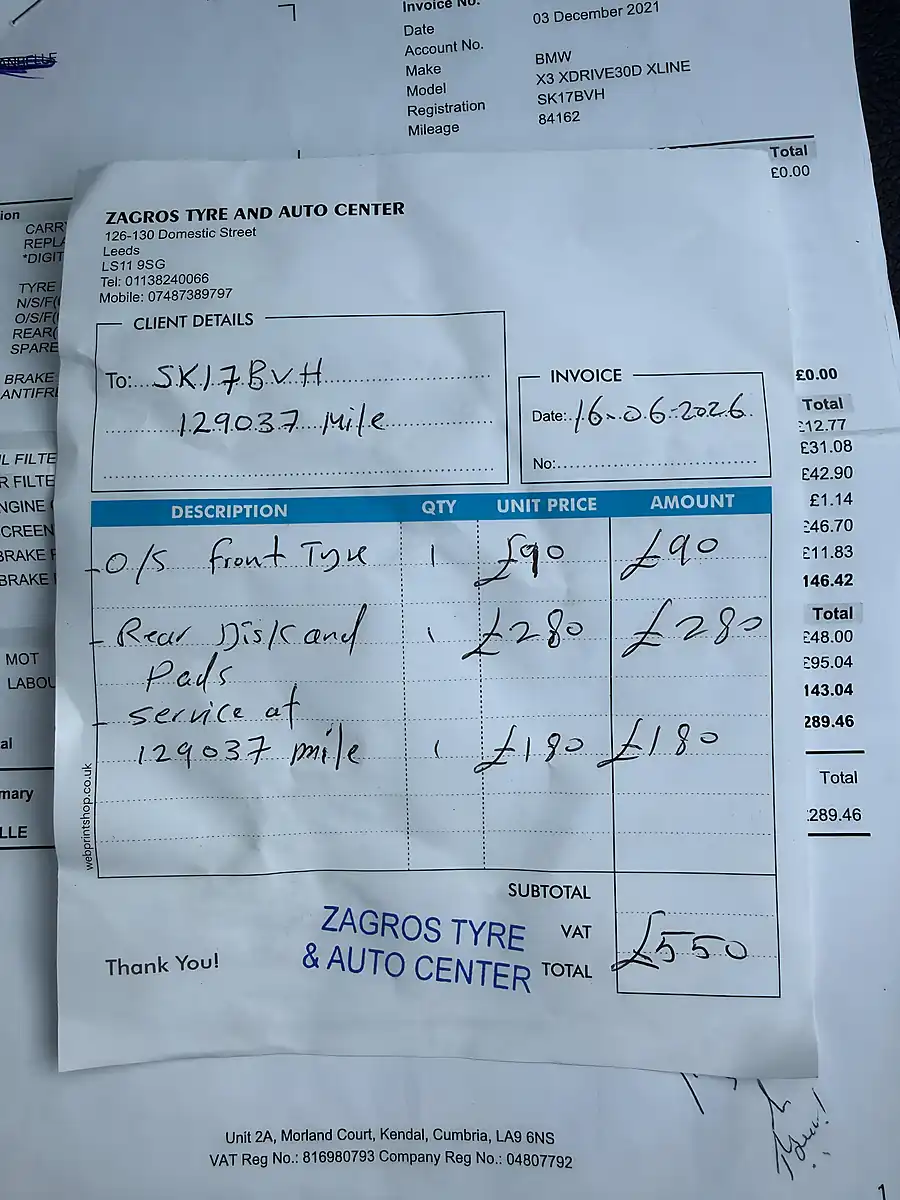 Invoice No.
Date 03 December 2021
Account No.
Make BMW
Model X3 XDRIVE30D XLINE
Registration SK17BVH
Mileage 84162
Total
£0.00
ZAGROS TYRE AND AUTO CENTER
126-130 Domestic Street
Leeds
LS11 9SG
Tel: 01138240066
Mobile: 07487389797
CLIENT DETAILS
To: SK17BVH
129037 Mile
INVOICE
Date: 16-06-2026
No:
DESCRIPTION QTY UNIT PRICE AMOUNT
- O/S front Tyre 1 £90 £90
- Rear Disk and 1 £280 £280
Pads
- Service at
129037 mile 1 £180 £180
SUBTOTAL
VAT
TOTAL £550
Thank You!
ZAGROS TYRE
& AUTO CENTER
webprintshop.co.uk
ion
CARR
REPLA
*DIGIT
TYRE
N/S/F(
O/S/F(
REAR(
SPARE
BRAKE
ANTIFRE
L FILTE
R FILTE
NGINE
CREEN
BRAKE F
BRAKE
MOT
LABOU
al
mary
LLE
£0.00
Total
£12.77
£31.08
£42.90
£1.14
£46.70
£11.83
146.42
Total
£48.00
£95.04
143.04
289.46
Total
289.46
Unit 2A, Morland Court, Kendal, Cumbria, LA9 6NS
VAT Reg No.: 816980793 Company Reg No.: 04807792
1